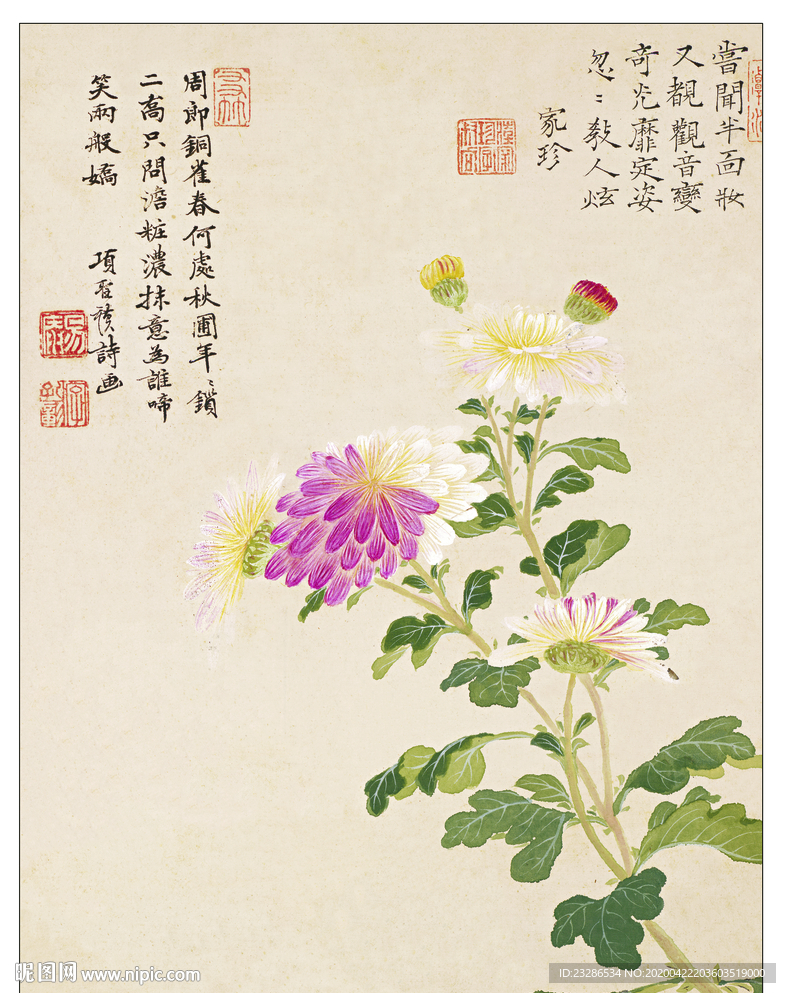 嘗聞半面妝
又覩觀音變
奇光靡定姿
忽〻教人炫
家珍
周郎銅雀春何處秋圃年〻鎖
二喬只問澹粧濃抹意為誰啼
笑兩般嬌
項聖謨詩画
昵图网 www.nipic.com
ID:23286534 NO:20200422203603519000